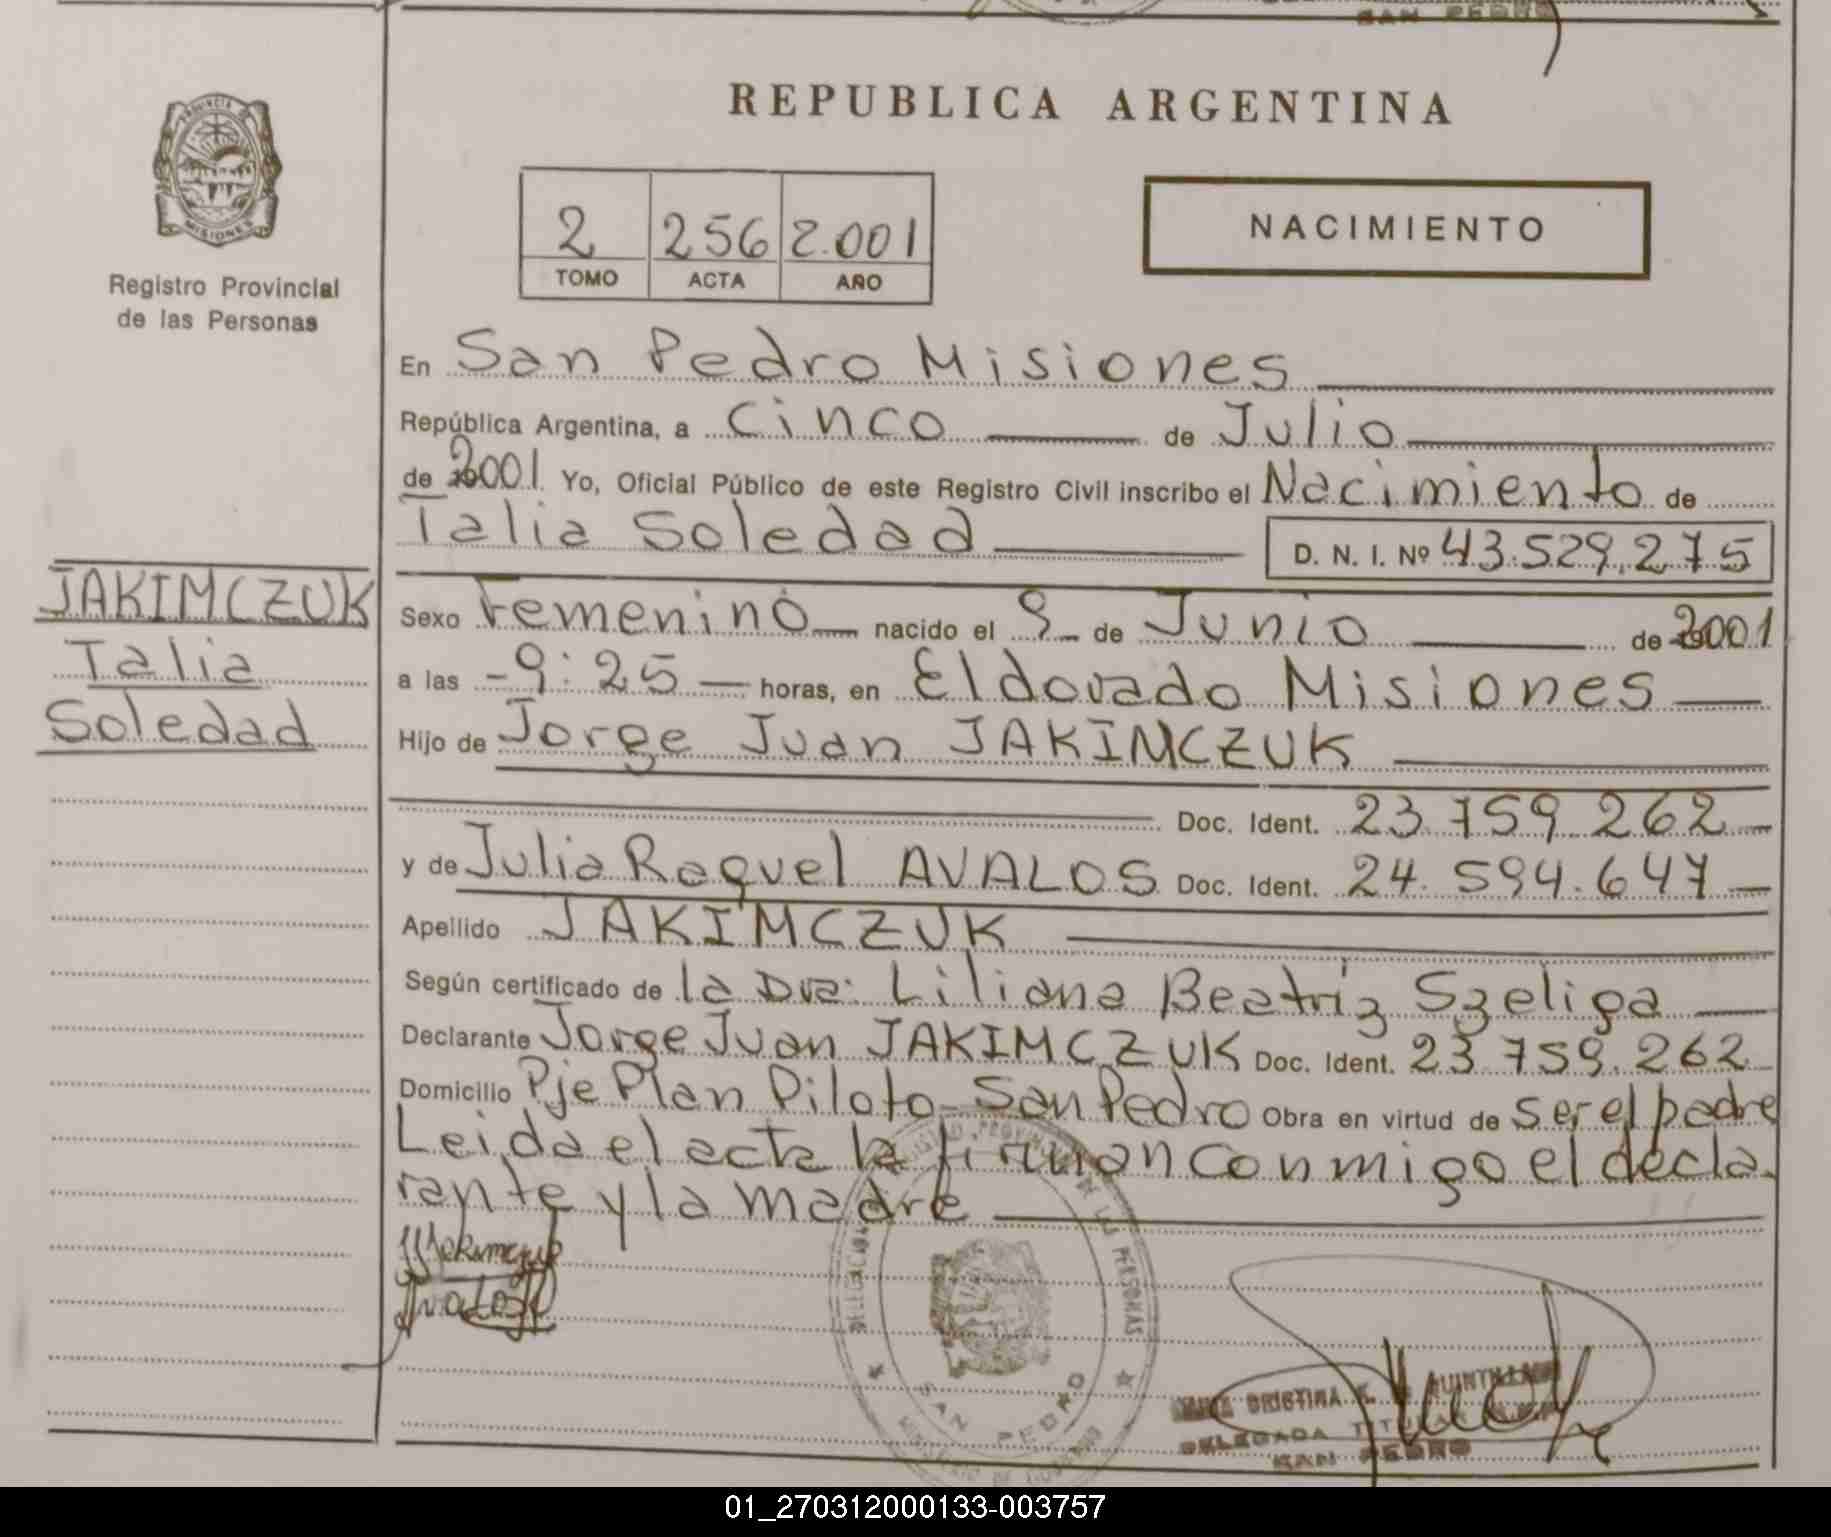 SAN PEDRO
PROVINCIA DE
MISIONES
Registro Provincial
de las Personas
REPUBLICA ARGENTINA
2 256 2.001
TOMO ACTA AÑO
NACIMIENTO
En San Pedro Misiones
República Argentina, a Cinco de Julio
de 2001 Yo, Oficial Público de este Registro Civil inscribo el Nacimiento de
Talia Soledad D. N. I. Nº 43.529.275
JAKIMCZUK
Talia
Soledad
Sexo Femenino nacido el 9 de Junio de 2001
a las - 9:25 - horas, en Eldorado Misiones
Hijo de Jorge Juan JAKIMCZUK
Doc. Ident. 23.759.262
y de Julia Raquel AVALOS Doc. Ident. 24.594.647
Apellido JAKIMCZUK
Según certificado de la Dra: Liliana Beatriz Szeliga
Declarante Jorge Juan JAKIMCZUK Doc. Ident. 23.759.262
Domicilio Pje Plan Piloto - San Pedro Obra en virtud de ser el padre
Leida el acta la firman conmigo el decla-
rante y la madre
JJJakimczuk
Avalos
DE LAS PERSONAS
SAN PEDRO
MINISTERIO DE GOBIERNO
CRISTINA
DELEGADA TITULAR
SAN PEDRO
01_270312000133-003757